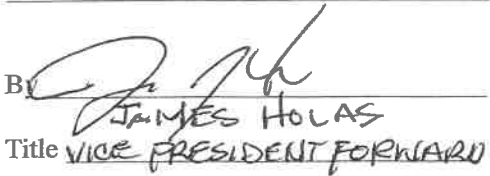 By
JAMES HOLAS
Title VICE PRESIDENT FORWARD